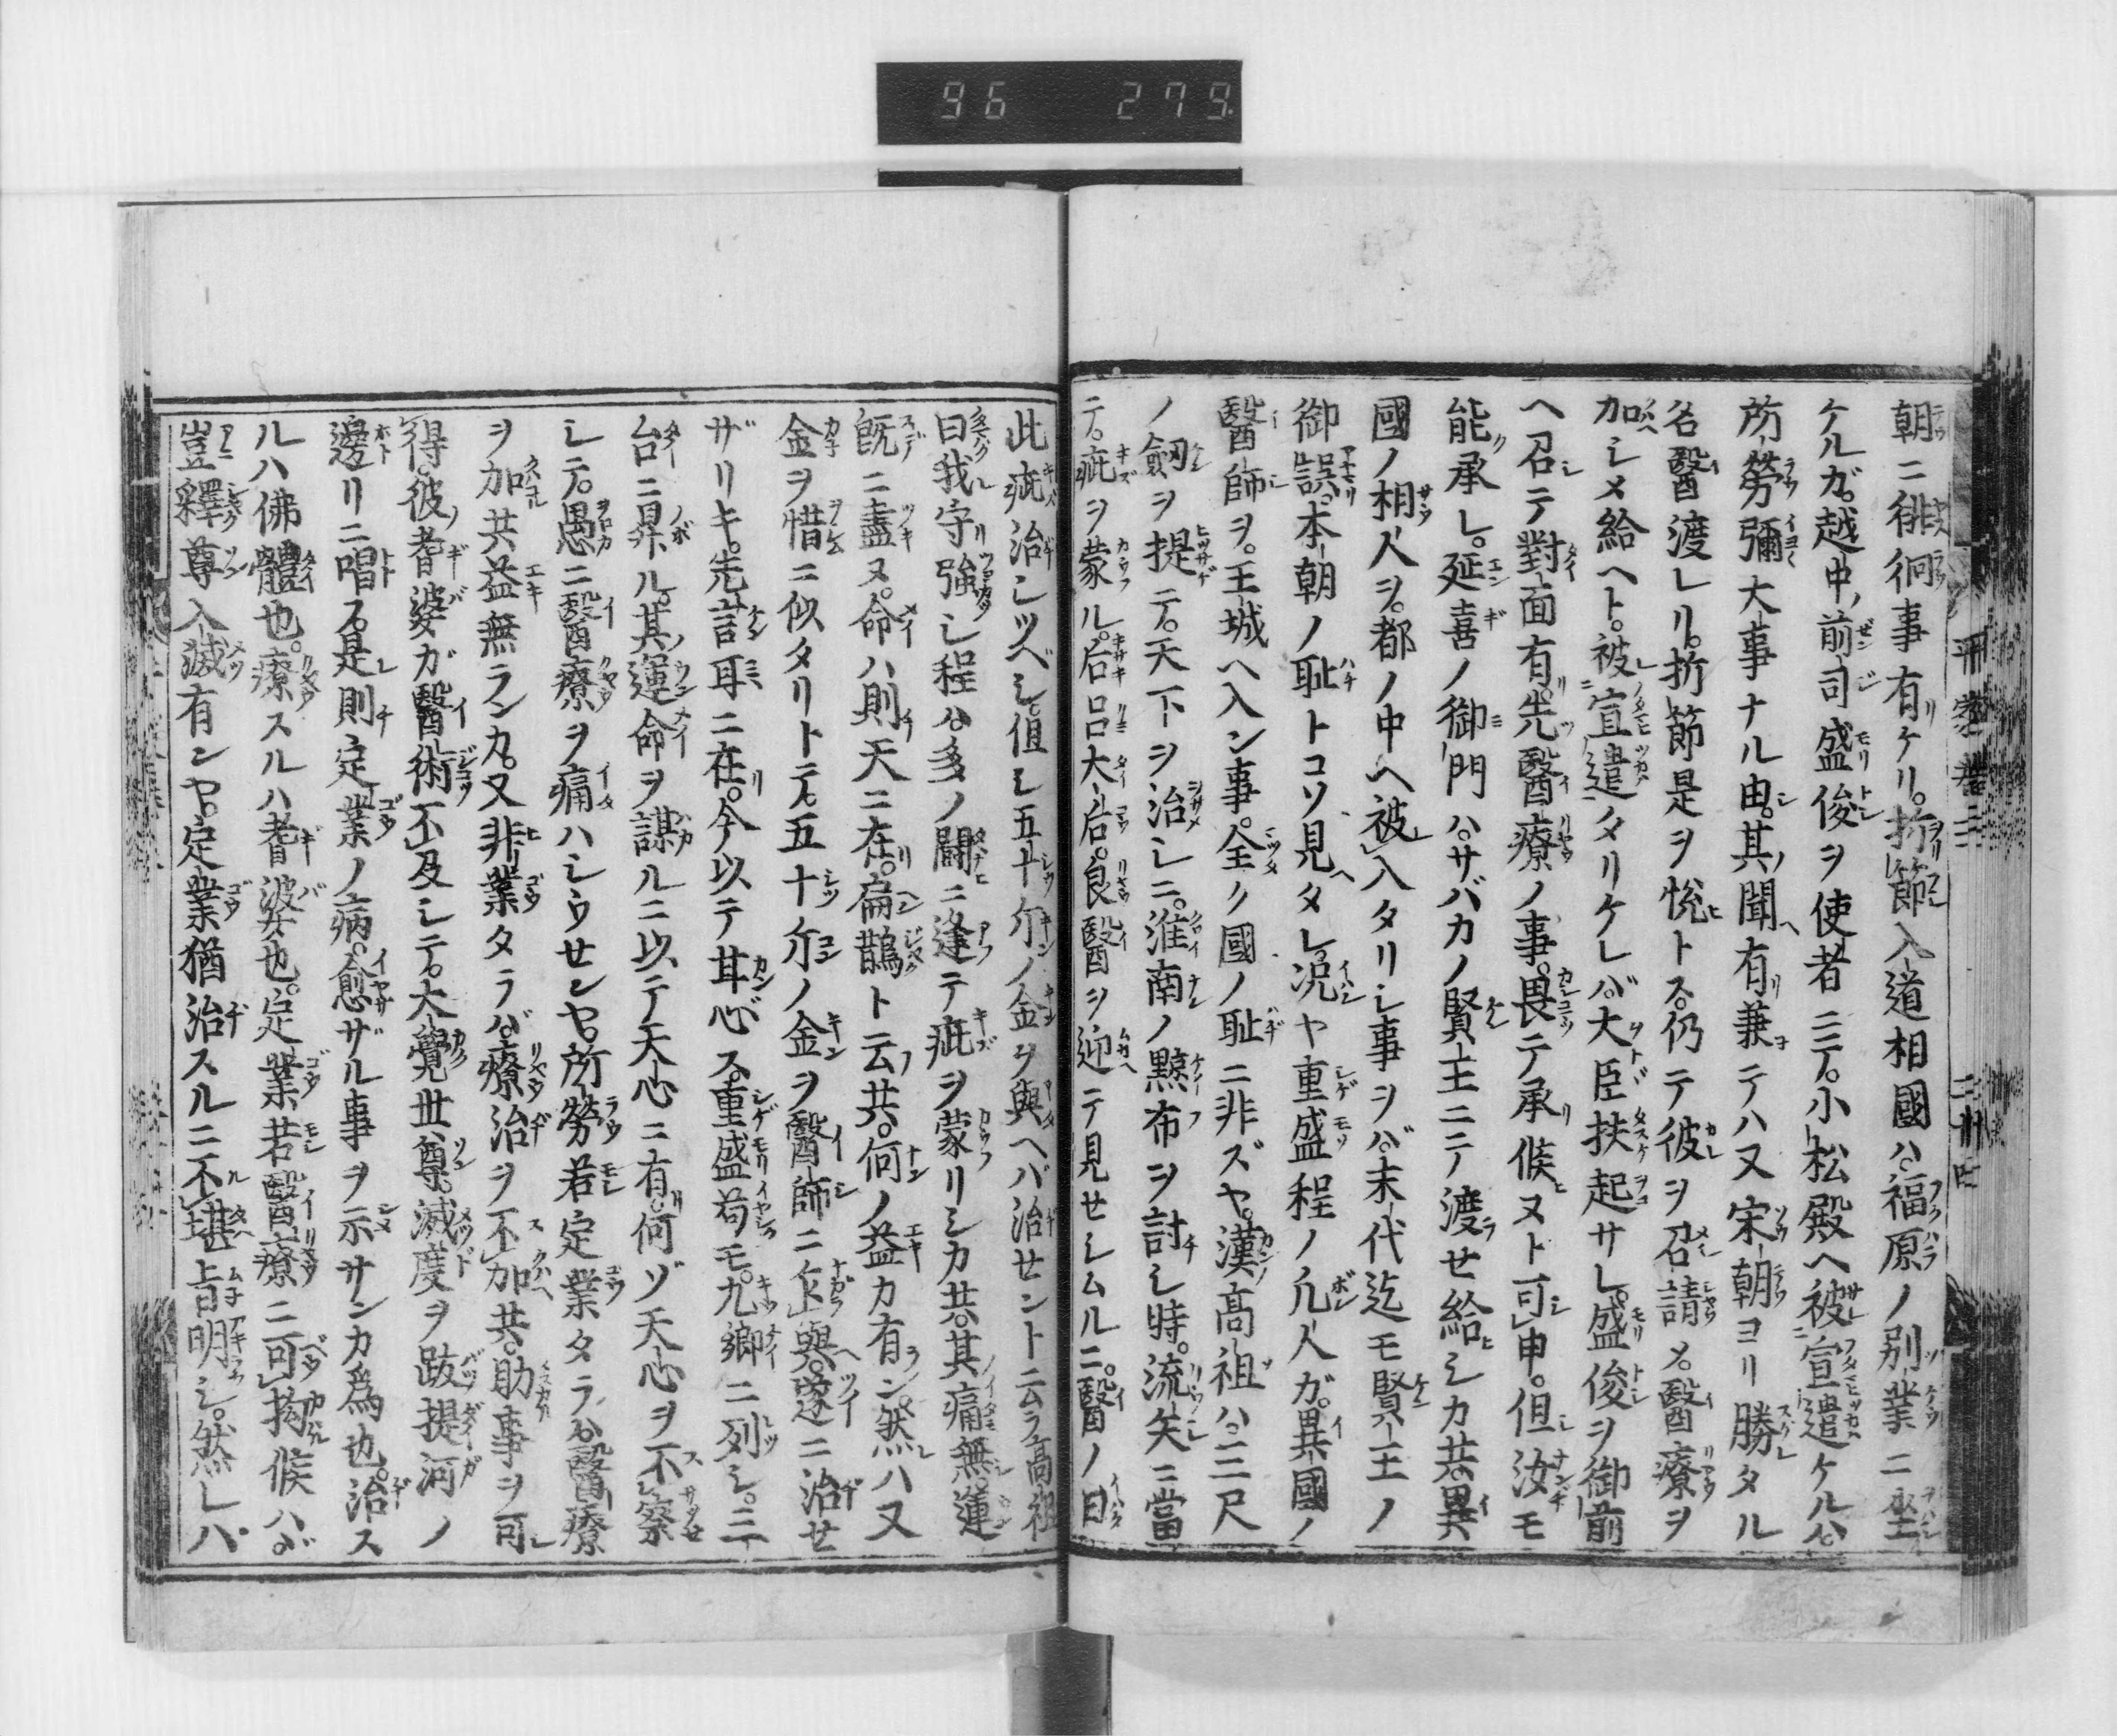 96 279.
平家巻三
三ノ廿四
朝ニ徘徊事有ケリ。折節入道相國ハ。福原ノ別業ニ坐
ケルガ。越中ノ前司盛俊ヲ使者ニテ。小松殿ヘ被宣遣ケルハ。
所勞彌大事ナル由。其聞有。兼テハ又宋朝ヨリ勝タル
名醫渡レリ。折節是ヲ悅トス。仍テ彼ヲ召請メ。醫療ヲ
加シメ給ヘト。被宣遣タリケレバ。大臣扶起サレ。盛俊ヲ御前
ヘ召テ對面有。先醫療ノ事。畏テ承候ヌト可申。但汝モ
能承レ。延喜ノ御門ハ。サバカノ賢主ニテ渡セ給シカ共。異
國ノ相人ヲ。都ノ中ヘ被入タリシ事ヲバ。末代迄モ賢王ノ
御誤。本朝ノ恥トコソ見タレ。況ヤ重盛程ノ凡人ガ。異國ノ
醫師ヲ。王城ヘ入ン事。全ク國ノ恥ニ非ズヤ。漢高祖ハ。三尺
ノ劔ヲ提テ。天下ヲ治シニ。淮南ノ黥布ヲ討シ時。流矢ニ當
テ。疵ヲ蒙ル。后呂大后。良醫ヲ迎テ見セシムルニ。醫ノ曰
此疵治シツベシ。但シ五十斤ノ金ヲ與ヘバ治セント云ラ高祖
曰。我守強シ程ハ。多ノ鬪ニ逢テ疵ヲ蒙リシカ共。其痛無。運
既ニ盡ヌ。命ハ則天ニ在。扁鵲ト云共。何ノ益カ有ン。然ハ又
金ヲ惜ニ似タリトテ。五十斤ノ金ヲ醫師ニ乍與。遂ニ治セ
ザリキ。先言耳ニ在。今以テ甘心ス。重盛苟モ。九卿ニ列シ。三
台ニ昇ル。其運命ヲ謀ルニ以テ天心ニ有。何ゾ天心ヲ不察
シテ。愚ニ醫療ヲ痛ハシウセンヤ。所勞若定業タラバ。醫療
ヲ加共益無ランカ。又非業タラバ。療治ヲ不加共。助事ヲ可
得。彼耆婆ガ醫術不及シテ。大覺世尊。滅度ヲ跋提河ノ
邊リニ唱ス。是則定業ノ病。愈ザル事ヲ示サンカ爲也。治ス
ルハ佛體也。療スルハ耆婆也。定業若醫療ニ可拘候ハバ
豈釋尊入滅有ンヤ。定業猶治スルニ不堪旨明シ。然レハ